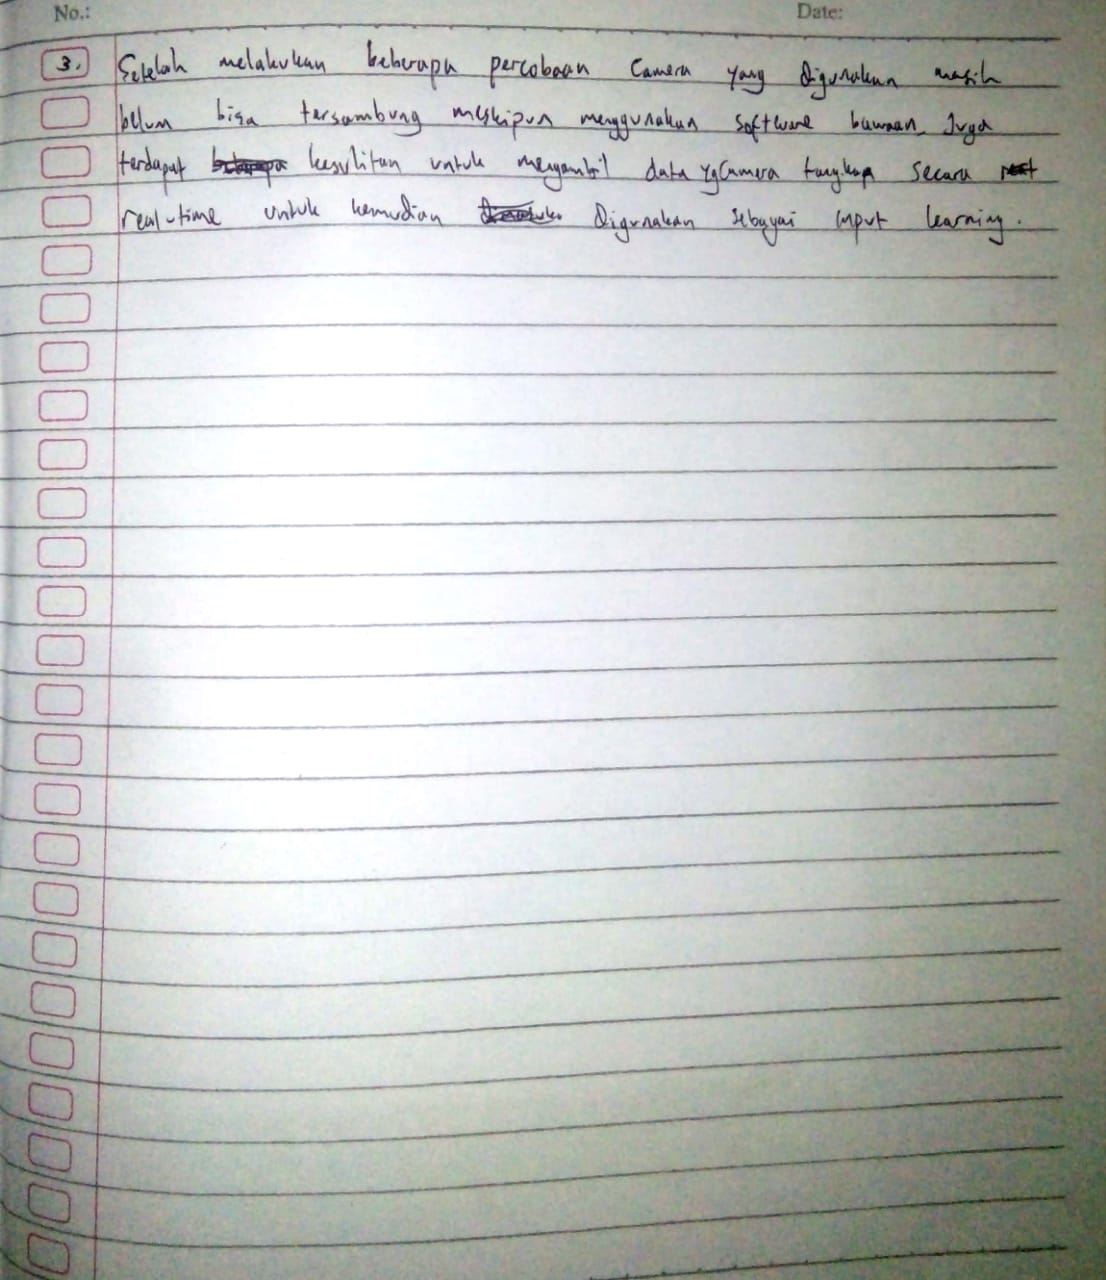 No.: Date:
3. Setelah melakukan beberapa percobaan Camera yang digunakan masih
belum bisa tersambung meskipun menggunakan software bawaan. Juga
terdapat kesulitan untuk mengambil data yg Camera tangkap secara
real-time untuk kemudian digunakan sebagai input learning.